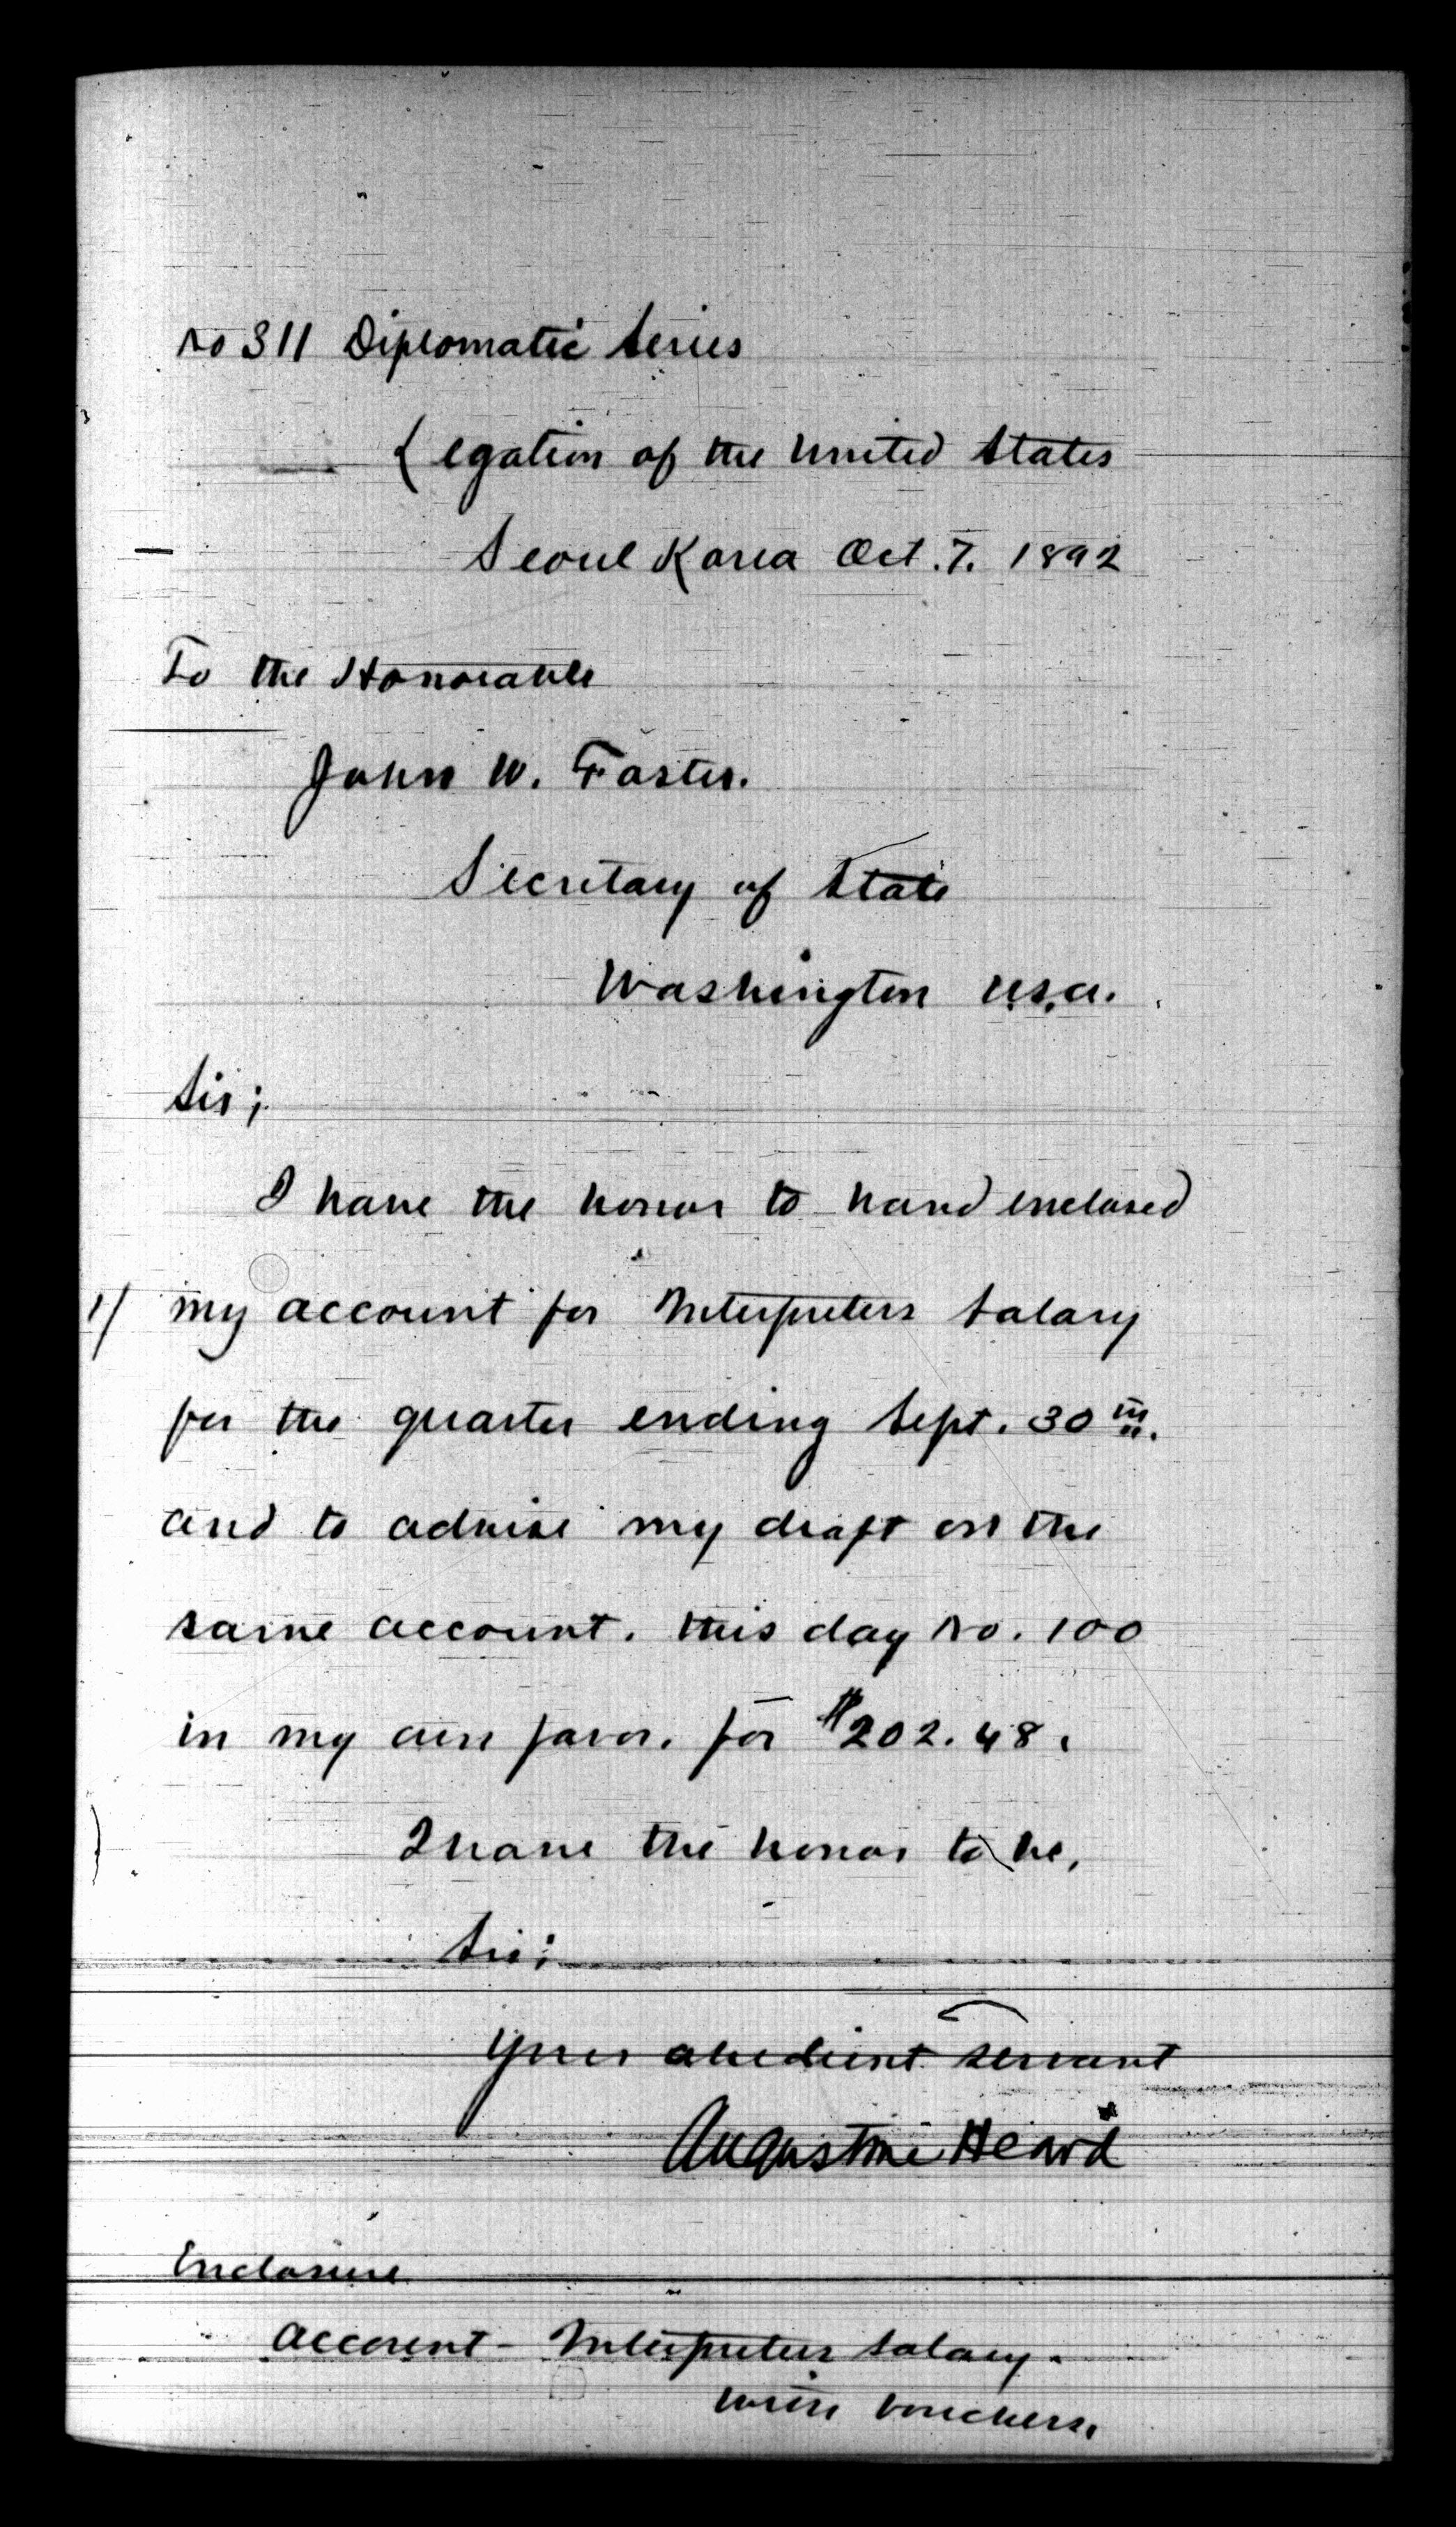 No 311 Diplomatic Series
Legation of the United States
Seoul Korea Oct. 7. 1892
To the Honorable
John W. Foster.
Secretary of State
Washington U.S.A.
Sir;
I have the honor to hand enclosed
1/ my account for Interpreters Salary
for the quarter ending Sept. 30th.
and to advise my draft on the
same account. this day No. 100
in my own favor. for $202.48.
I have the honor to be,
Sir;
Your obedient servant
Augustine Heard
Enclosure
Account - Interpreters Salary.
with vouchers.